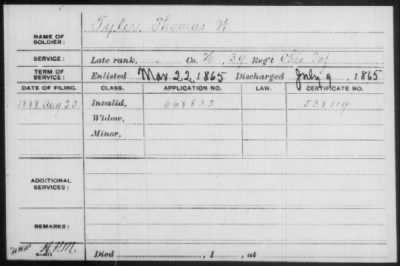 NAME OF SOLDIER: Tyler, Thomas W.
SERVICE: Late rank, Co. H, 39 Reg't Ohio Inf
TERM OF SERVICE: Enlisted Mar 22, 1865 Discharged July 9, 1865
DATE OF FILING. CLASS. APPLICATION NO. LAW. CERTIFICATE NO.
1888 Aug 20 Invalid,
Widow,
Minor,
ADDITIONAL SERVICES:
REMARKS:
Died , 1 , at